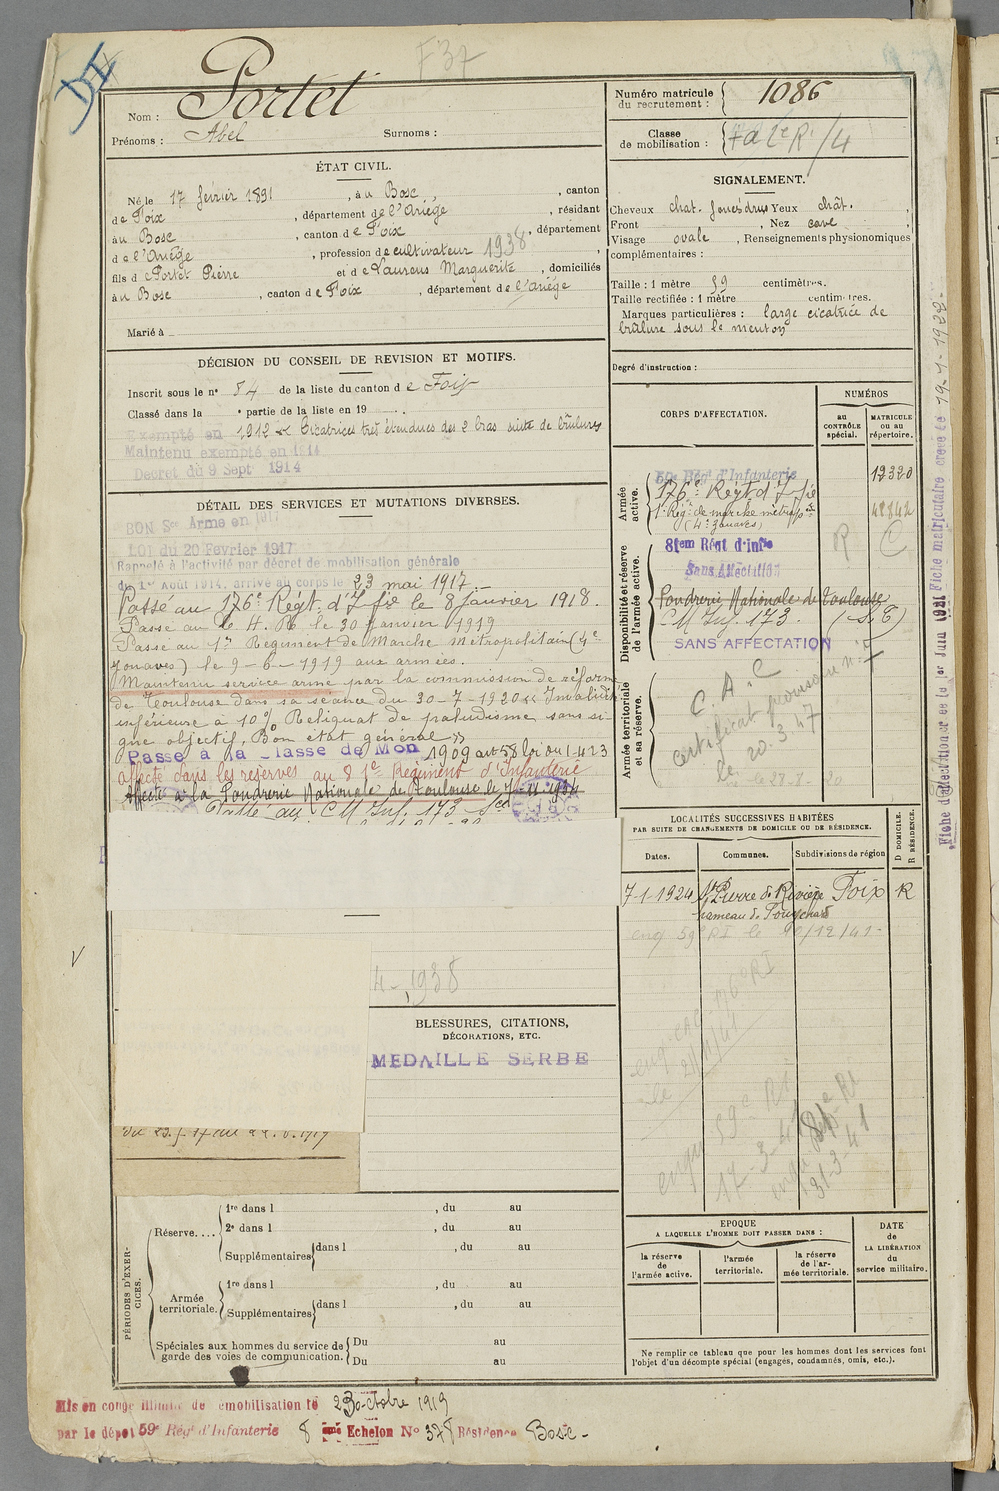 DI
F 37
Nom : Portet
Prénoms : Abel Surnoms :
Numéro matricule du recrutement : 1086
Classe de mobilisation : /4
ÉTAT CIVIL.
Né le 17 février 1891, à u Bosc, canton
de Foix, département de l'Ariège, résidant
à u Bosc, canton de Foix, département
de l'Ariège, profession de cultivateur 1938,
fils de Portet Pierre et de Laurens Marguerite, domiciliés
à u Bosc, canton de Foix, département de l'Ariège
Marié à
SIGNALEMENT.
Cheveux chat. foncés Yeux chât.,
Front , Nez cave,
Visage ovale, Renseignements physionomiques
complémentaires :
Taille : 1 mètre 59 centimètres.
Taille rectifiée : 1 mètre centimètres.
Marques particulières : large cicatrice de
brûlure sous le menton
Degré d'instruction :
DÉCISION DU CONSEIL DE REVISION ET MOTIFS.
Inscrit sous le n° 84 de la liste du canton de Foix
Classé dans la e partie de la liste en 19 .
Exempté en 1912 « Cicatrices très étendues des 2 bras suite de brûlures
Maintenu exempté en 1914
Decret du 9 Sept 1914
DÉTAIL DES SERVICES ET MUTATIONS DIVERSES.
BON Sce Arme en 1917
LOI du 20 Fevrier 1917
Rappelé à l'activité par décret de mobilisation générale
du 1er Août 1914, arrivé au corps le 23 mai 1917.
Passé au 176e Régt. d'Ifie le 8 janvier 1918.
Passé au le 30 janvier 1919
Passé au 1er Régiment de Marche Métropolitain (4e
Zouaves) le 9-6-1919 aux armées.
Maintenu service armé par la commission de réforme
de Toulouse dans sa séance du 30-7-1920 « Invalidité
inférieure à 10% Reliquat de paludisme sans si-
gne objectif. Bon état général »
Passé à la Classe de Mob 1909 art 58 loi du 1-4-23
affecté dans les réserves au 81e Régiment d'Infanterie
Affecté à la Poudrerie Nationale de Toulouse le
Passé au C M Inf. 173
CORPS D'AFFECTATION.
NUMÉROS
au CONTRÔLE spécial.
MATRICULE ou au répertoire.
Armée active.
59e Régt d'Infanterie
176e Régt d'Ifie
12320
1er Rég. de marche métrop.
(4e zouaves)
Disponibilité et réserve de l'armée active.
81em Régt d'Infie
Sans Affectation
R C
Poudrerie Nationale de Toulouse
C M Inf. 173. (S. E)
SANS AFFECTATION
Armée territoriale et sa réserve.
C. A. C
certificat provisoire n°
le 20.3.47
Fiche d'affectation er de 1er Juin 1921 Fiche matriculaire créée le 19-1-1922-
LOCALITÉS SUCCESSIVES HABITÉES
PAR SUITE DE CHANGEMENTS DE DOMICILE OU DE RÉSIDENCE.
Dates. Communes. Subdivisions de région
D DOMICILE.
R RÉSIDENCE.
7-1-1924 St Pierre de Rivière Foix R
hameau de
enq 59e RI le 90/12/41-
enq CAC 176e RI
le 21/1/41
59e RI
17-3-41
31-3-41
4-1938
BLESSURES, CITATIONS,
DÉCORATIONS, ETC.
MEDAILLE SERBE
PÉRIODES D'EXERCICES.
Réserve.... 1re dans l , du au
2e dans l , du au
Supplémentaires dans l , du au
Armée territoriale. 1re dans l , du au
Supplémentaires dans l , du au
Spéciales aux hommes du service de Du au
garde des voies de communication. Du au
EPOQUE
A LAQUELLE L'HOMME DOIT PASSER DANS :
la réserve de l'armée active.
l'armée territoriale.
la réserve de l'armée territoriale.
DATE de LA LIBÉRATION du service militaire.
Ne remplir ce tableau que pour les hommes dont les services font
l'objet d'un décompte spécial (engagés, condamnés, omis, etc.).
Mis en congé illimité de démobilisation le 23 octobre 1919
par le dépôt 59e Régt d'Infanterie 8 ème Echelon N° 378 Résidence Bosc-